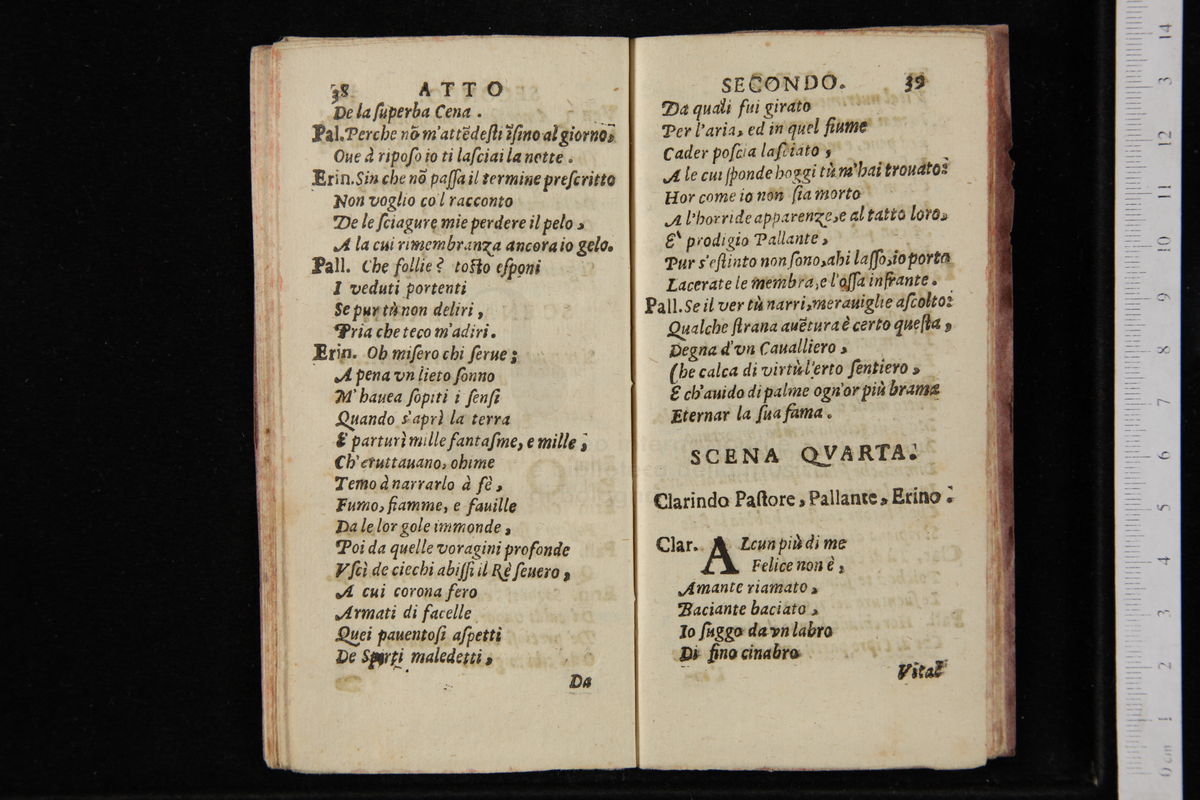 38 ATTO
De la ſuperba Cena.
Pal. Perche nõ m'attẽdeſti ĩſino al giorno,
Oue à ripoſo io ti laſciai la notte.
Erin. Sin che nõ paſſa il termine preſcritto
Non voglio co'l racconto
De le ſciagure mie perdere il pelo,
A la cui rimembranza ancora io gelo.
Pall. Che follie? toſto eſponi
I veduti portenti
Se pur tù non deliri,
Pria che teco m'adiri.
Erin. Oh miſero chi ſerue;
A pena vn lieto ſonno
M'hauea ſopiti i ſenſi
Quando s'aprì la terra
E parturì mille fantaſme, e mille;
Ch'eruttauano, ohime
Temo à narrarlo à fè,
Fumo, fiamme, e fauille
Da le lor gole immonde,
Poi da quelle voragini profonde
Vſcì de ciechi abiſſi il Rè ſeuero,
A cui corona fero
Armati di facelle
Quei pauentoſi aſpetti
De Spirti maledetti,
Da
SECONDO. 39
Da quali fui girato
Per l'aria, ed in quel fiume
Cader poſcia laſciato,
A le cui ſponde hoggi tù m'hai trouato:
Hor come io non ſia morto
A l'horride apparenze, e al tatto loro,
E' prodigio Pallante,
Pur s'eſtinto non ſono, ahi laſſo, io porto
Lacerate le membra, e l'oſſa infrante.
Pall. Se il ver tù narri, merauiglie aſcolto:
Qualche ſtrana auẽtura è certo queſta,
Degna d'vn Caualliero,
Che calca di virtù l'erto ſentiero,
E ch'auido di palme ogn'or più brama
Eternar la ſua fama.
SCENA QVARTA.
Clarindo Paſtore, Pallante, Erino.
Clar. ALcun più di me
Felice non è,
Amante riamato,
Baciante baciato,
Io ſuggo da vn labro
Di fino cinabro
Vital
14
3
12
11
10
9
8
7
6
5
4
3
2
1
0 cm